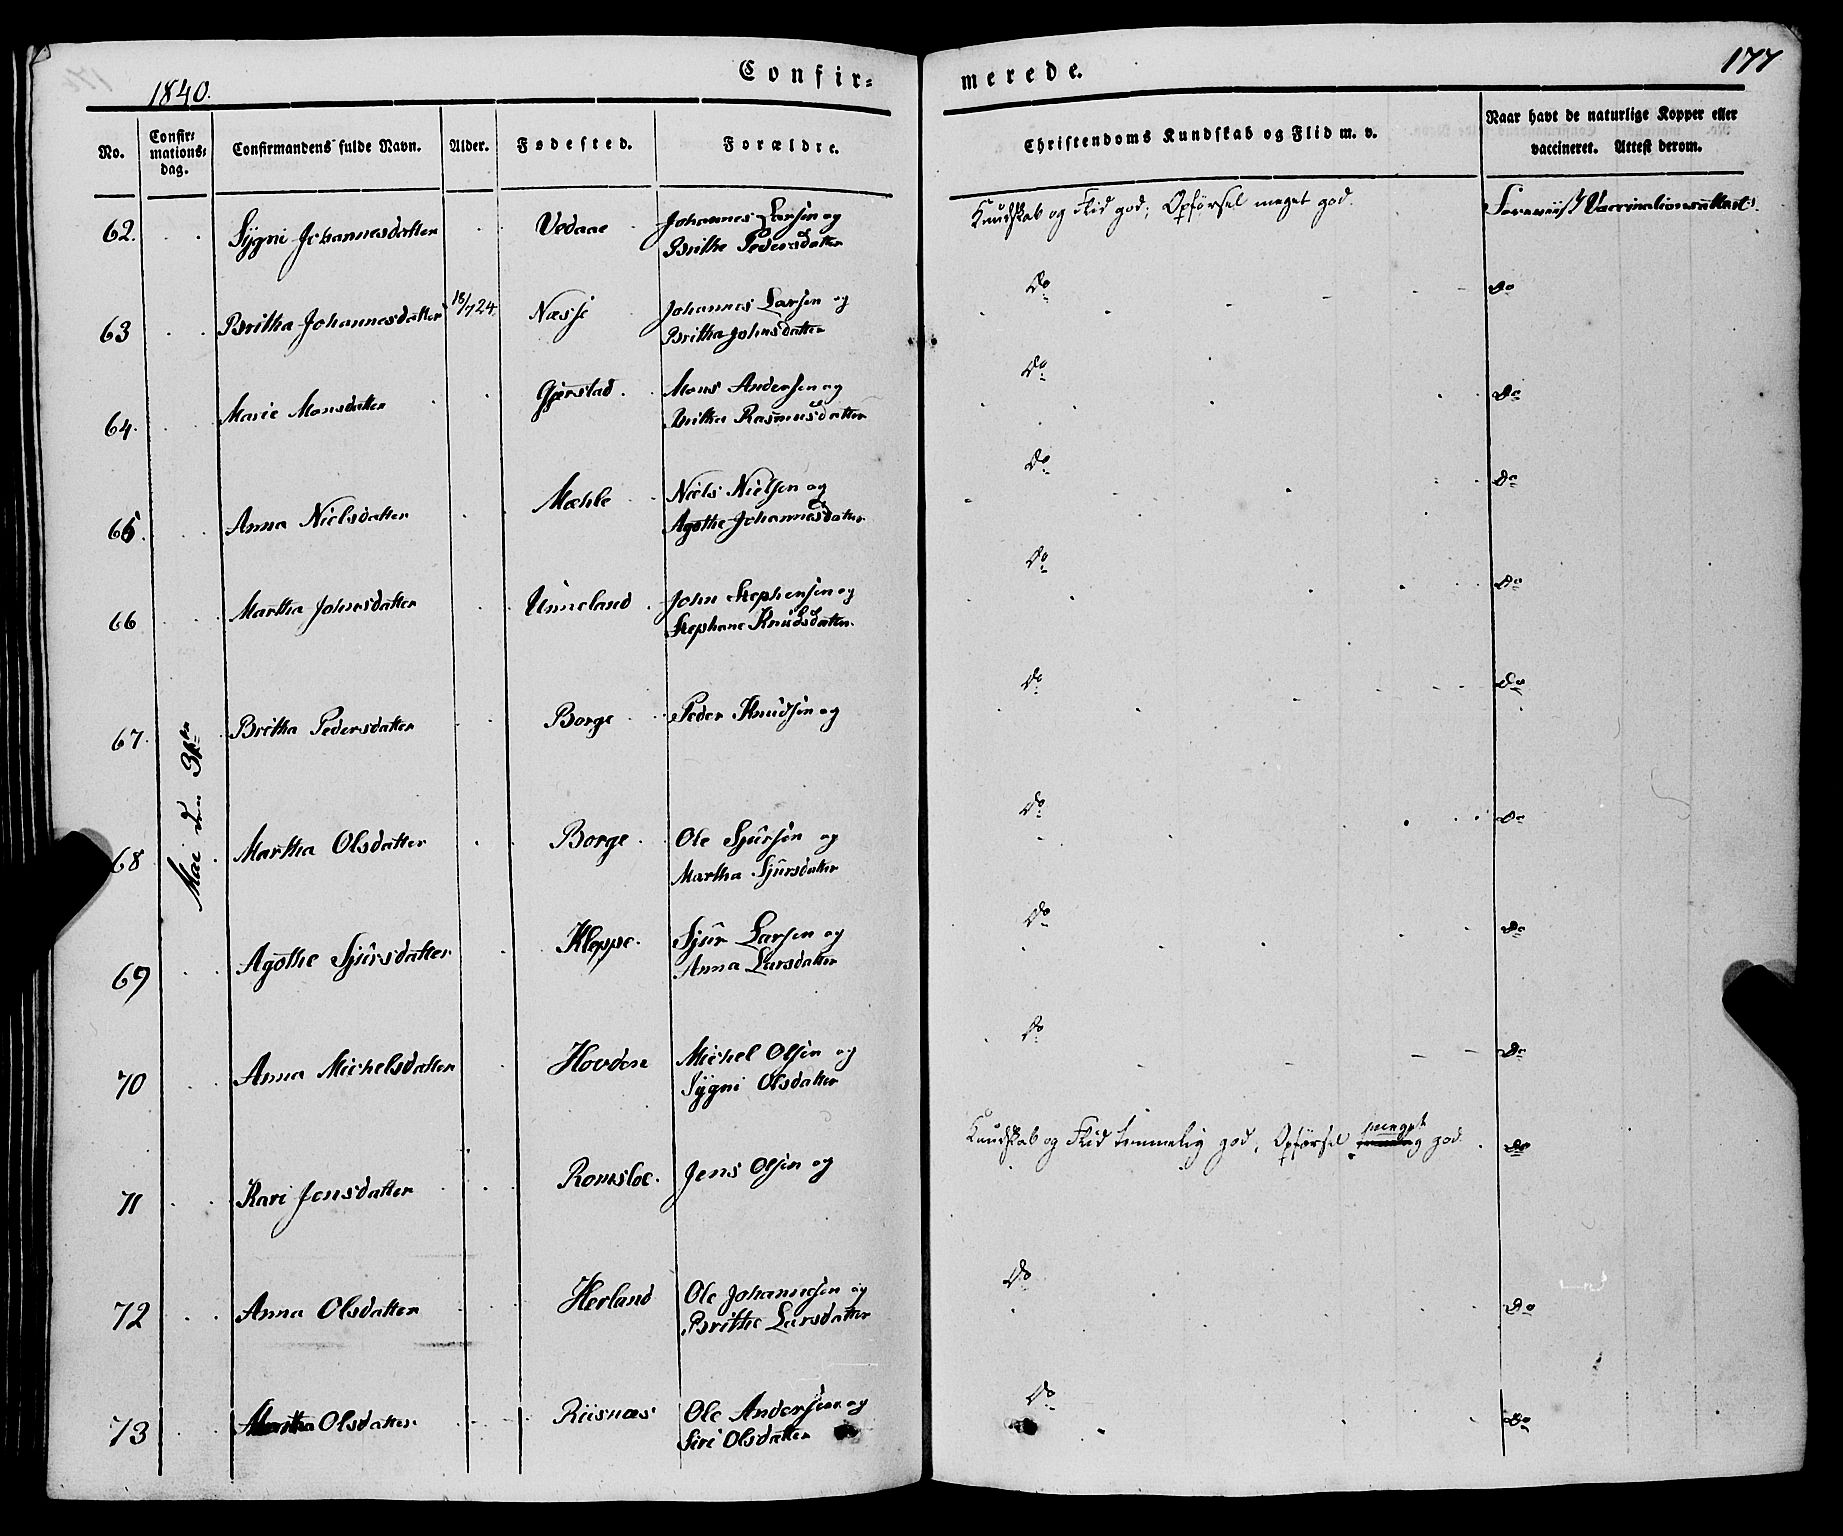 1840.
Confir=
merede.
177
No.
Confir=
mations=
dag.
Confirmandens fulde Navn.
Alder.
Fødested.
Forældre.
Christendoms Kundskab og Flid m. v.
Naar havt de naturlige Kopper eller
vaccineret. Attest derom.
Mai den 3die
62. Sygni Johannesdatter Vedaae Johannes Larsen og
Brithe Pedersdatter
Kundskab og Flid god; Opførsel meget god. Foreviist Vaccinationsattest.
63 Britha Johannesdatter 18/7 24. Næsse Johannes Larsen og
Britha Johnsdatter
Do Do
64. Marie Monsdatter Gjerstad. Mons Andersen og
Britha Rasmusdatter
Do Do
65. Anna Nielsdatter Mæhle Niels Nielsen og
Agothe Johannesdatter
Do Do
66 Martha Johnsdatter Unneland John Stephensen og
Stephane Knudsdatter.
Do Do
67. Britha Pedersdatter Borge Peder Knudsen og
Do Do
68 Martha Olsdatter Borge Ole Sjursen og
Martha Sjursdatter
Do Do
69 Agothe Sjursdatter Kleppe. Sjur Larsen og
Anna Larsdatter
Do Do
70 Anna Michelsdatter Hovden Michel Olsen og
Sygni Olsdatter
Do Do
meget
71 Kari Jensdatter Romsloe. Jens Olsen og
Kundskab og Flid temmelig god, Opførsel god. Do
72 Anna Olsdatter Herland Ole Johannesen og
Brithe Larsdatter
Do Do
73 Olsdatter Riisnæs Ole Andersen og
Siri Olsdatter
Do Do